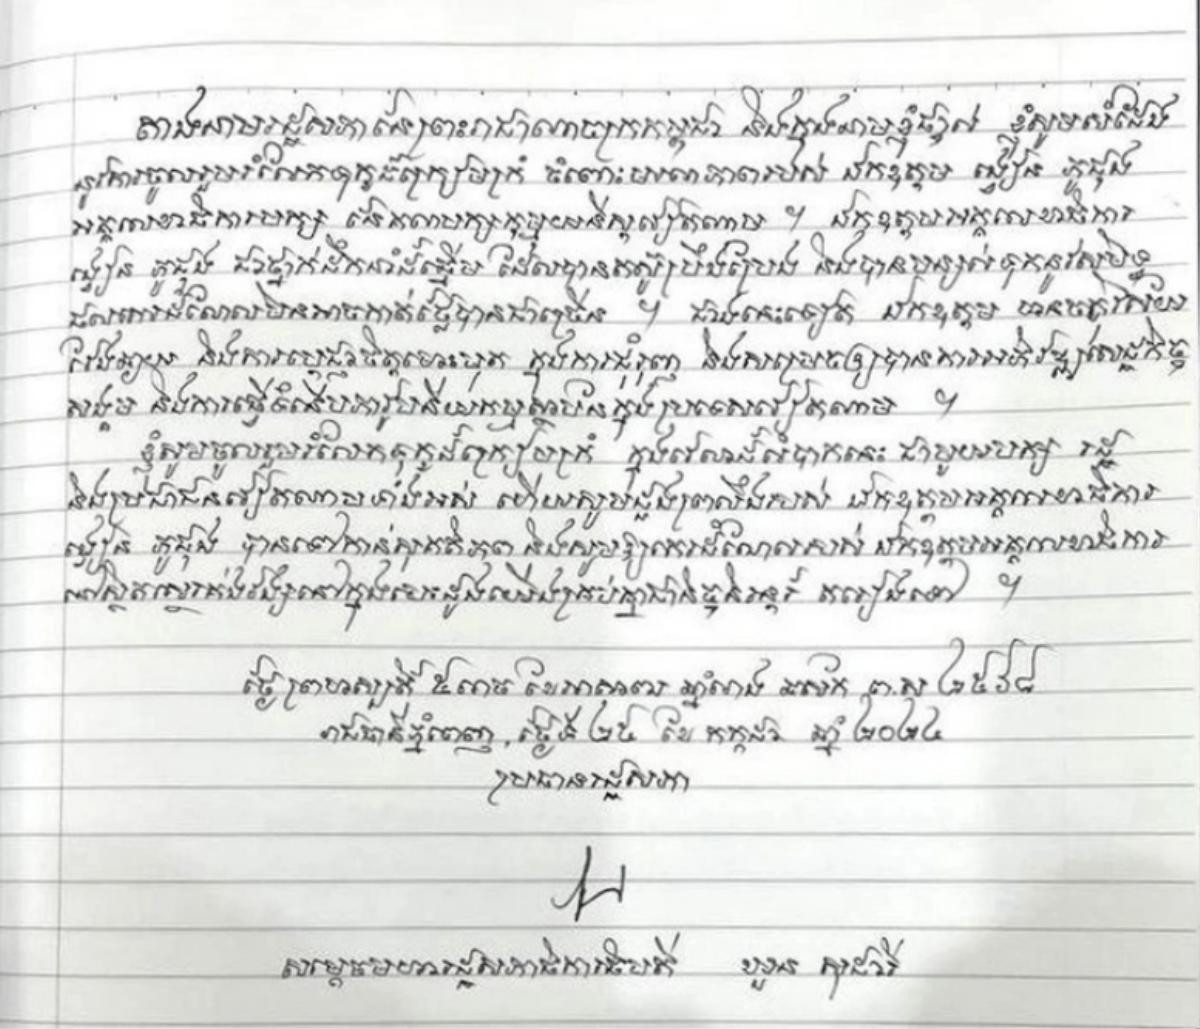 តាងនាមរដ្ឋសភានៃព្រះរាជាណាចក្រកម្ពុជា និងក្នុងនាមខ្ញុំផ្ទាល់ ខ្ញុំសូមសំដែង
នូវការចូលរួមរំលែកទុក្ខដ៏ក្រៀមក្រំ ចំពោះមរណភាពរបស់ ឯកឧត្តម ង្វៀន ភូជុង
អគ្គលេខាធិការបក្ស នៃគណបក្សកុម្មុយនីស្តវៀតណាម ។ ឯកឧត្តមអគ្គលេខាធិការ
ង្វៀន ភូជុង ជាថ្នាក់ដឹកនាំដ៏ឆ្នើម ដែលបានតស៊ូប្រឹងប្រែង និងបានបន្សល់ទុកនូវសមិទ្ធ
ផលការដ៏ដែលមិនអាចកាត់ថ្លៃបានជាច្រើន ។ ជាងនេះទៀត ឯកឧត្តម មានចក្ខុវិស័យ
វែងឆ្ងាយ និងការប្តេជ្ញាចិត្តមោះមុត ក្នុងការជំរុញ និងសម្រេចឲ្យបានការអភិវឌ្ឍសេដ្ឋកិច្ច
សង្គម និងការធ្វើទំនើបភាវូបនីយកម្មស្ថាប័នក្នុងប្រទេសវៀតណាម ។
ខ្ញុំសូមចូលរួមរំលែកទុក្ខដ៏ក្រៀមក្រំ ក្នុងវេលាដ៏លំបាកនេះ ជាមួយបក្ស រដ្ឋ
និងប្រជាជនវៀតណាមទាំងអស់ ហើយសូមដួងព្រលឹងរបស់ ឯកឧត្តមអគ្គលេខាធិការ
ង្វៀន ភូជុង បានទៅកាន់សុគតិភព និងសូមឱ្យកេរដំណែលរបស់ ឯកឧត្តមអគ្គលេខាធិការ
នៅស្ថិតស្ថេរគង់វង្សនៅក្នុងបេះដូងយើងគ្រប់គ្នាជានិច្ចនិរន្តរ៍ តរៀងទៅ ។
ថ្ងៃ ព្រហស្បតិ៍ ៥រោច ខែអាសាឍ ឆ្នាំរោង ឆស័ក ព.ស ២៥៦៨
រាជធានីភ្នំពេញ, ថ្ងៃទី ២៥ ខែ កក្កដា ឆ្នាំ ២០២៤
ប្រធានរដ្ឋសភា
សម្តេចមហារដ្ឋសភាធិការធិបតី ឃួន សុដារី